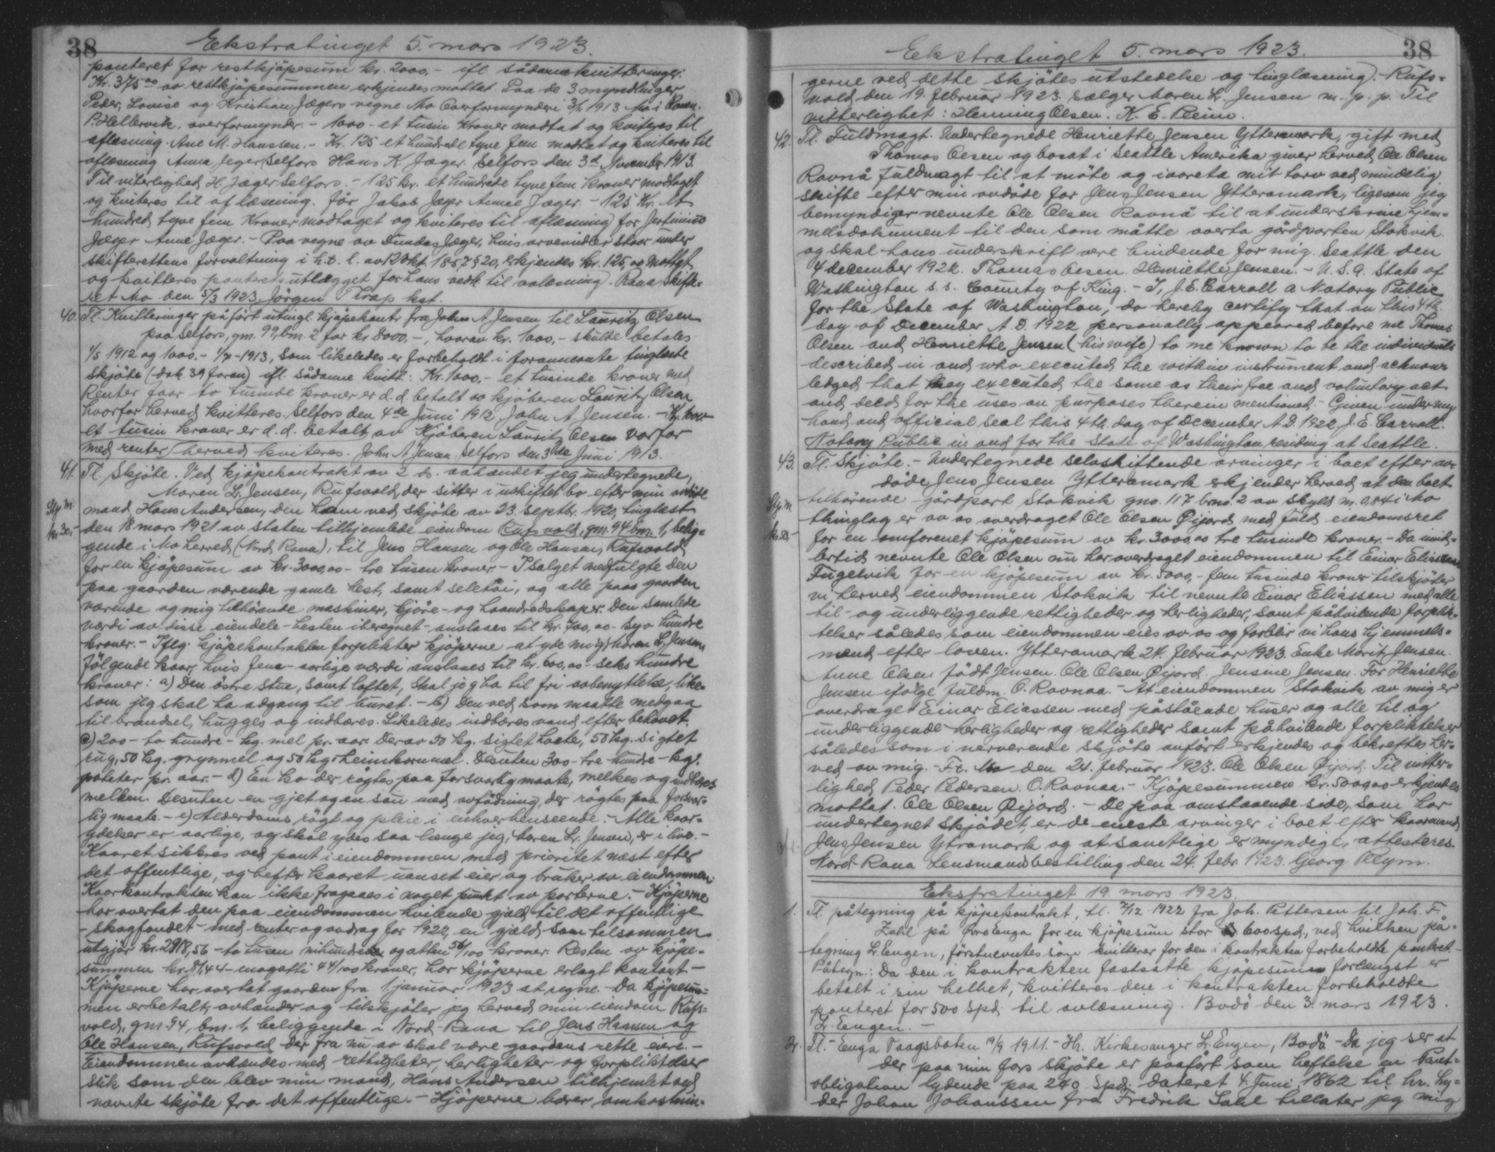 38
Ekstratinget 5. mars 1923.
panteret for restkjøpesum kr. 2000,- ifl sådanne kvitteringer.
Kr. 375.00 av restkjøpesummen erkjendes mottat. Paa de 3 myndlinger
Peder, Lovise og Kristian Jægers vegne Mo Overformynderi 1913
overformynder. - 1000 - et tusin Kroner modtat og kviteres til
aflesning. Ane M. Hanssen. - Kr. 125 et hundrede tyve fem modtat og kviteres til
aflesning Anna Jeger Selfors Hans K Jæger. Selfors den 3d November 1913.
Til viterlighed H. Jæger Selfors. - 125 kr. et hundrede tyve fem kroner modtaget
og kviteres til aflæsning. For Jakob Jæger Anne Jæger. - 125 Kr. Et
hundred tyve fem Kroner modtaget og kviteres til aflæsning for
Jæger Anne Jæger. - Paa vegne av Jæger, hvis arvemidler staar under
skifterettens forvaltning i h.t. l. av § 20, erkjendes kr. 125,00 mottat
og kvitteres panterets utlægget for hans vedk. til avlæsning. Rana Skifte-
ret Mo den 5/3 1923. Jörgen Trap kst.
40. Tl. Kvitteringer på ført utingl. kjøpekontr. fra John A Jensen til Lauritz Olsen
paa Selfors, gm. 99, bm. 2 for kr. 8000,-, hvorav kr. 1000,- skulde betales
1/5 1912 og 1000.- 1/7 1913, som likeledes er forbeholdt i forannævnte tinglæste
skjøte (dok 39 foran) ifl sådanne kvitt: Kr. 1000,- et tusinde kroner med
Renter for to tusinde kroner er d.d betalt av kjøberen Lauritz Olsen
hvorfor herved kvitteres. Selfors den 4de Juni 1912 John A Jensen. -
et tusin kroner er d.d. betalt av Kjøberen Lauritz Olsen vorfor
med renter herved kviteres. John A Jensen Selfors den 3die Juni 1913.
41. Tl. Skjøte. Ved kjøpekontrakt av 2 ds. avhændet jeg undertegnede
Maren L. Jensen, Rufsvold, der sitter i uskiftet bo efter min avdöde
mand Hans Andersen, den ham ved skjøte av 23. septbr. 1920, tinglæst
den 18 mars 1921 av staten tilhjemlede eiendom Rufsvold, gm. 94 bm. 1, belig-
gende i Mo herred (Nord Rana), til Jens Hansen og Ole Hansen, Rufsvold,
for en kjøpesum av kr. 3000,00 - tre tusen kroner - I salget medfulgte den
paa gaarden værende gamle hest, samt seletøi, og alle paa gaarden
værende og mig tilhørende maskiner, kjøre- og haandredskaper. Den samlede
værdi av disse eiendele - hesten iberegnet - ansættes til kr. 700,00 - syv hundre
kroner. - Ifølg kjøpekontrakten forplikter kjøperne at yde mig Maren L. Jensen
følgende kaar, hvis fem-aarlige værdi ansættes til kr. 600,00 - seks hundre
kroner: a) Den østre stue, samt loftet, skal jeg ha til fri avbenyttelse, like-
som jeg skal ha adgang til buret. - b) Den ved som maatte medgaa
til brændsel, hugges og indbæres. Likeledes indbæres vand efter behovet.
c) 200 - to hundre - kg. mel pr. aar. Derav 50 kg. sigtet hvete, 50 kg. sigtet
rug, 50 kg. grynmel og 50 kg. heimkornmel. Desuten 300 - tre hundre - kg.
poteter pr. aar. - d) En ko der røgtes paa forsvarlig maate, melkes og indbæres
melken. Desuten en gjet og en sau med avfødning, der røgtes paa forsvar-
lig maate. - e) Alderdoms røgt og pleie i enhver henseende. - Alle kaar-
ydelser er aarlige, og skal ydes saa længe jeg, Maren L. Jensen, er i live. -
Kaaret sikkres ved pant i eiendommen med prioritet næst efter
det offentlige, og hefter kaaret uanset eier og bruker av eiendommen.
Kaarkontrakten kan ikke fragaaes i noget punkt av parterne. - Kjøperne
har overtat den paa eiendommen hvilende gjæld til det offentlige
- skogfondet - med renter og avdrag for 1922, en gjæld som tilsammen
utgjør kr. 2918,56 - to tusen nihundrede og atten 56/100 kroner. Resten av kjøpe-
summen kr. 81,44 - enogotti 44/100 kroner, har kjøperne erlagt kontant -
Kjøperne har overtat gaarden fra 1 januar 1923 at regne. Da kjøpesum-
men er betalt, avhænder og tilskjøter jeg herved min eiendom Rufs-
vold, gm. 94, bm. 1, beliggende i Nord-Rana til Jens Hansen og
Ole Hansen, Rufsvold, der fra nu av skal være gaardens rette eiere. -
Eiendommen avhændes med rettigheter, herligheter og forpliktelser
slik som den blev min mand, Hans Andersen tilhjemlet ved
nævnte skjøte fra det offentlige. - Kjøperne bærer omkostnin-
38
Ekstratinget 5. mars 1923.
gerne ved dette skjøtes utstedelse og tinglæsning). - Rufs-
vold, den 19. februar 1923. sælger Maren L. Jensen m. p. p. Til
vitterlighet: Henning Olsen. K. E. Reino.
42. Tl. Fuldmagt. Undertegnede Henriette Jensen Ytteramark, gift med
Thomas Olsen og bosat i Seattle Amerika giver herved Ole Olsen
Ravnå fuldmagt til at møte og ivareta mit tarv ved mindelig
skifte efter min avdøde far Jens Jensen Ytteramark, ligesom jeg
bemyndiger nevnte Ole Olsen Ravnå til at underskrive hjem-
melsdokument til den som måtte overta gårdparten Stokvik
og skal hans underskrift være bindende for mig. Seattle den
4 december 1922. Thomas Olsen. Henriette Jensen. - U.S.A. State of
Washington s.s. County of King. - I, J.E. Carroll a Notary Public
for the State of Washington, do hereby certify that on this 4th
day of December A.D. 1922 personally appeared before me Thomas
Olsen and Henriette Jensen (his wife) to me known to be the individuals
described in and who executed the within instrument and acknow-
ledged that they executed the same as their free and voluntary act
and deed for the uses an purposes therein mentioned. - Given under my
hand and official seal this 4th day of December A.D. 1922, J. E. Carroll.
Notary Public in and for the State of Washington residing at Seattle.
43. Tl. Skjøte. - Undertegnede selvskiftende arvinger i boet efter av-
døde Jens Jensen Ytteramark erkjender herved at den boet
tilhørende gårdpart Stokvik gno 117 brno 2 av skyld m. 0.84 i Mo
thinglag er av os overdraget Ole Olsen Øijord med fuld eiendomsret
for en omforenet kjøpesum av kr. 3000,00 tre tusinde kroner. - Da imid-
lertid nevnte Ole Olsen nu har overdraget eiendommen til Einar Eliassen
Fugelvik for en kjøpesum av kr. 5000,- fem tusinde kroner tilskjøter
vi herved eiendommen Stokvik til nevnte Einar Eliassen med alle
til- og underliggende rettigheder og herligheder, samt påhvilende forplik-
telser således som eiendommen eies av os og forblir vi hans hjemmels-
mænd efter loven. Ytteramark 24. februar 1923. Enke Merit Jensen.
Anne Olsen født Jensen. Ole Olsen Øijord. Jensine Jensen. For Henriette
Jensen ifølge fuldm. O. Ravnaa. - At eiendommen Stokvik av mig er
overdraget Einar Eliassen med påstående huser og alle til og
underliggende herligheder og rettigheder samt påhvilende forpliktelser
således som i nærværende skjøte anført erkjendes og bekreftes her-
ved av mig. - Ft. Mo den 24. februar 1923. Ole Olsen Øijord. Til vitter-
lighed Peder Pedersen. O. Ravnaa. - Kjøpesummen kr. 5000,00 erkjendes
mottat. Ole Olsen Øijord. - De paa omstaaende side, som har
undertegnet skjødet, er de eneste arvinger i boet efter kaarmand
Jens Jensen Ytramark og at samtlige er myndige, attesteres.
Nord Rana Lensmandsbestilling den 24. febr. 1923. Georg Alym.
Ekstratinget 19. mars 1923.
1. Tl. påtegning på kjøpekontrakt, tl. 7/12 1922 fra Joh. Pettersen til Joh. F.
Zahl på for en kjøpesum stor 600 spd, ved hvilken på-
tegning L. Engen, førstnevntes søn kvitterer for den i kontrakten forbeholdte panteret -
Påtegn: Da den i kontrakten fastsatte kjøpesum forlængst er
betalt i sin helhet, kvitteres den i kontrakten forbeholdte
panteret for 500 spd. til avlæsning. Bodø den 3 mars 1923.
L. Engen. -
2. Tl. - Enga Vaagsboten 1911. - Hr. Kirkesanger L. Engen, Bodø - Da jeg ser at
der paa min fars skjøte er paaført som heftelse en Pant-
obligation lydende paa 240 spd. dateret 4. Juni 1862 til hr. Ly-
der Johan Johanssen fra Fredrik Zahl tillater jeg mig